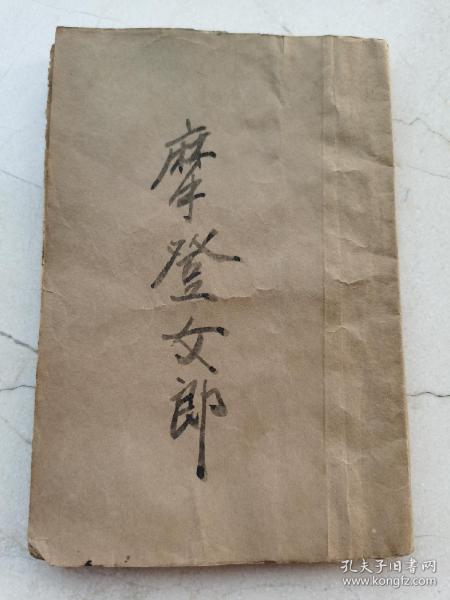 摩登女郎
孔夫子旧书网
www.kongfz.com